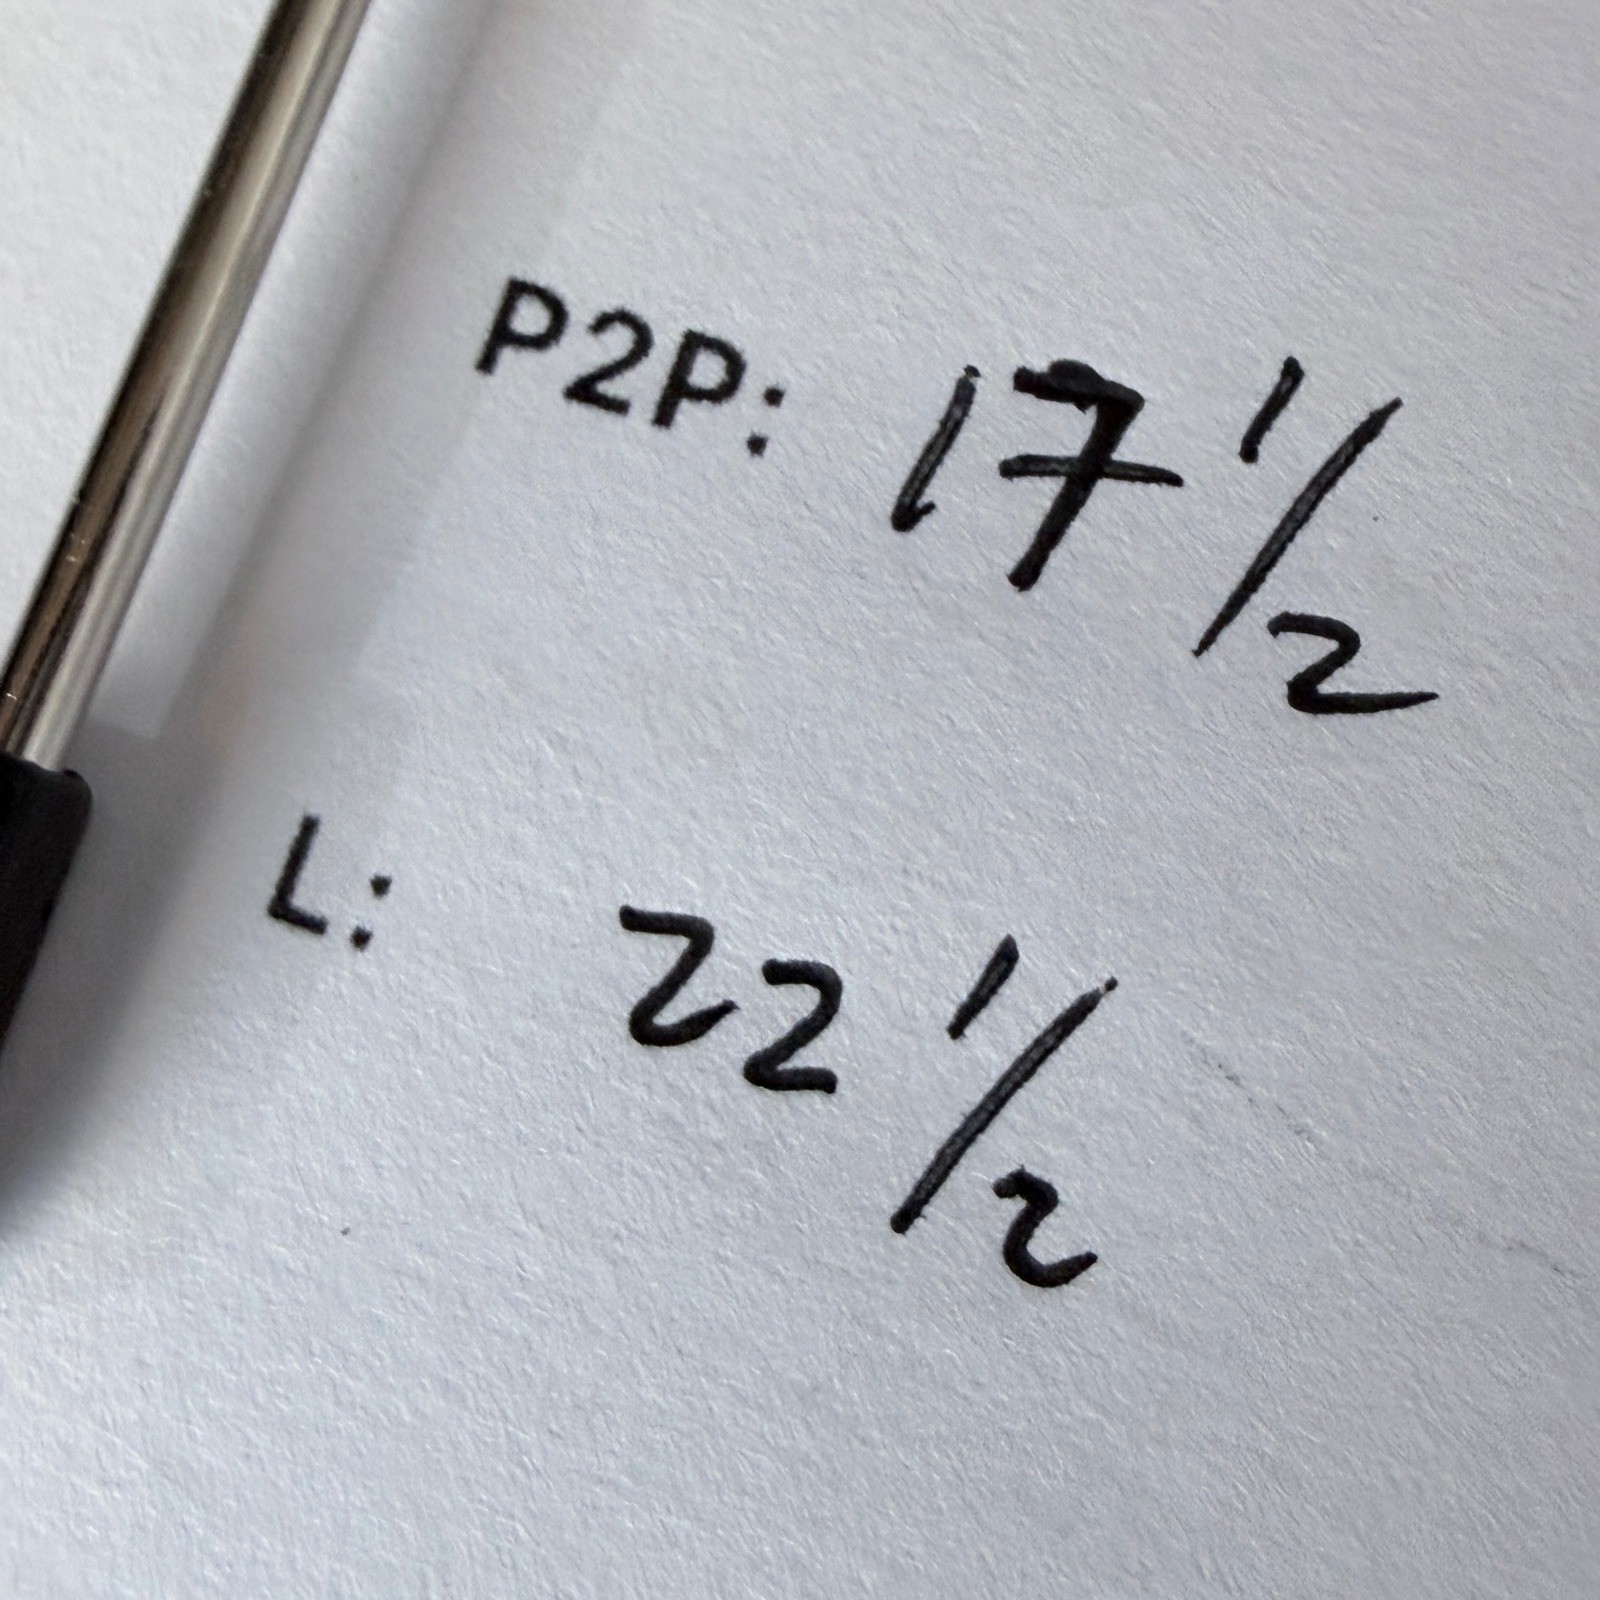 P2P: 17 1/2
L: 22 1/2